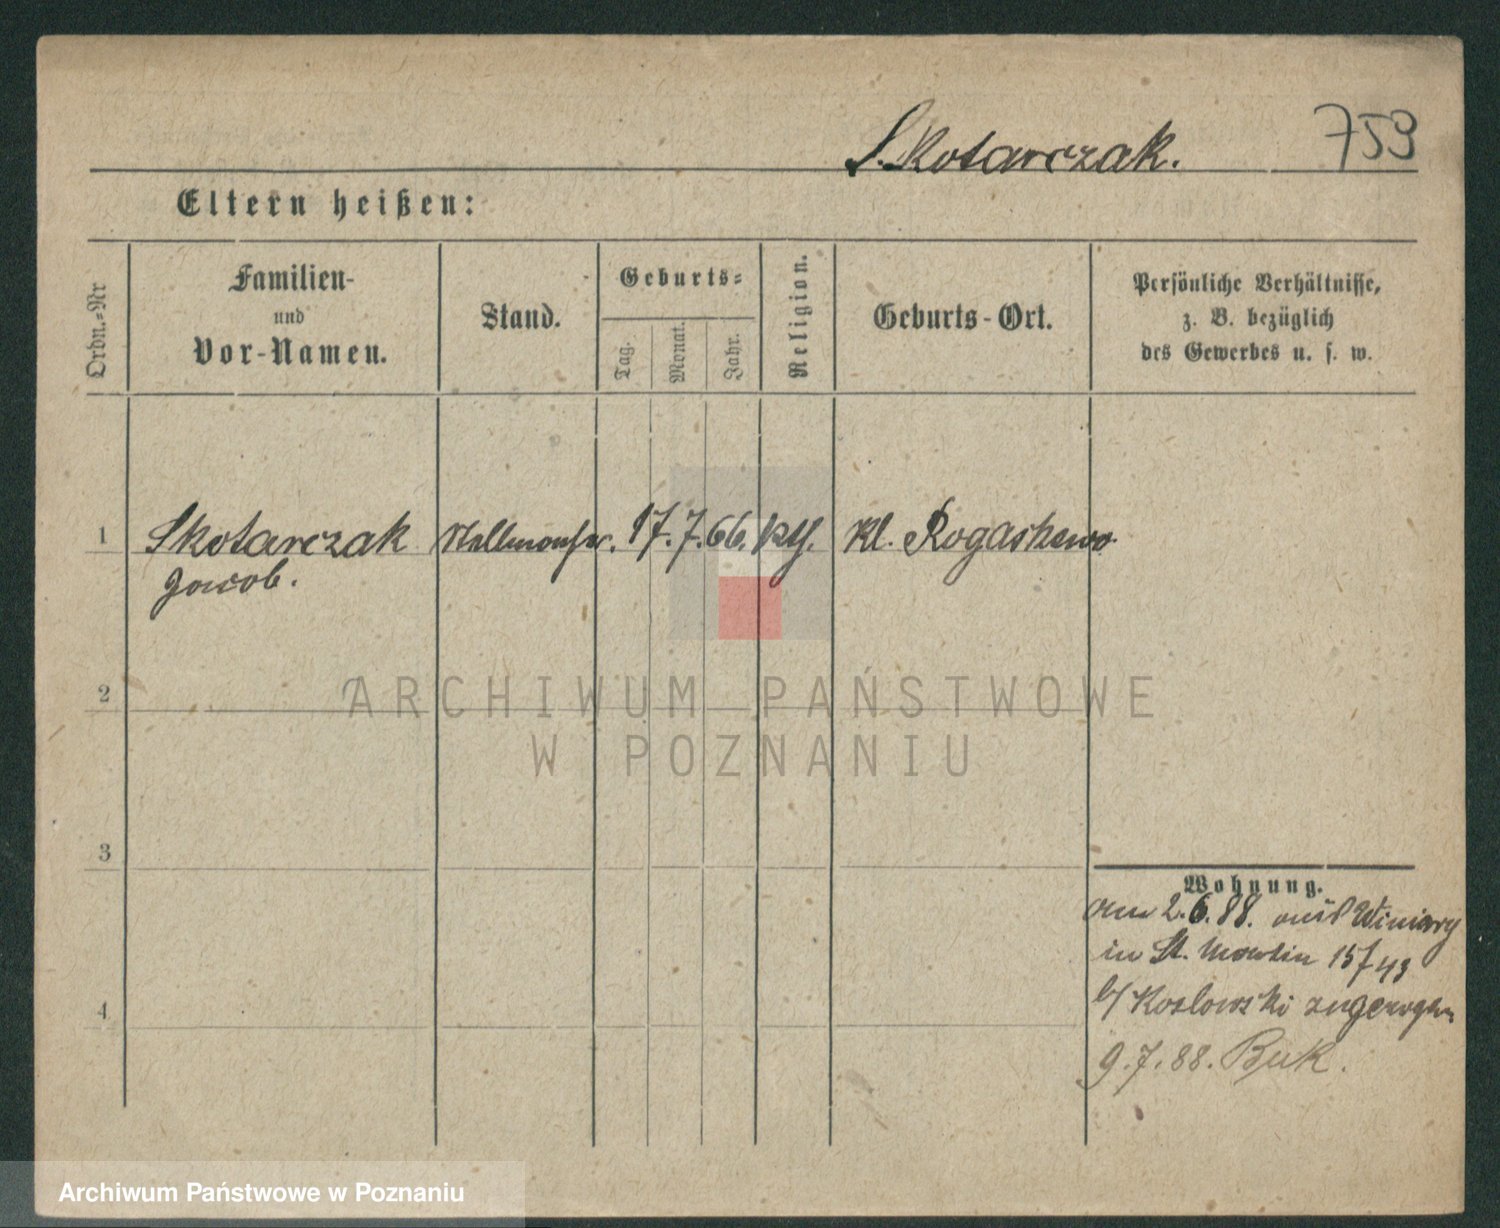 Skotarczak. 759
Eltern heißen:
Ordn.-Nr
Familien-
und
Vor-Namen.
Stand.
Geburts-
Tag.
Monat.
Jahr.
Religion.
Geburts-Ort.
Persönliche Verhältnisse,
z. B. bezüglich
des Gewerbes u. s. w.
1 Skotarczak 17. 7. 66. kth. Kl. Rogashewo
Jacob.
ARCHIWUM PAŃSTWOWE
W POZNANIU
2
3
4
Wohnung.
am 2.6.88. aus Winiary
in St. Martin
b/ Koslowski zugezogen
9.7.88. Buk.
Archiwum Państwowe w Poznaniu